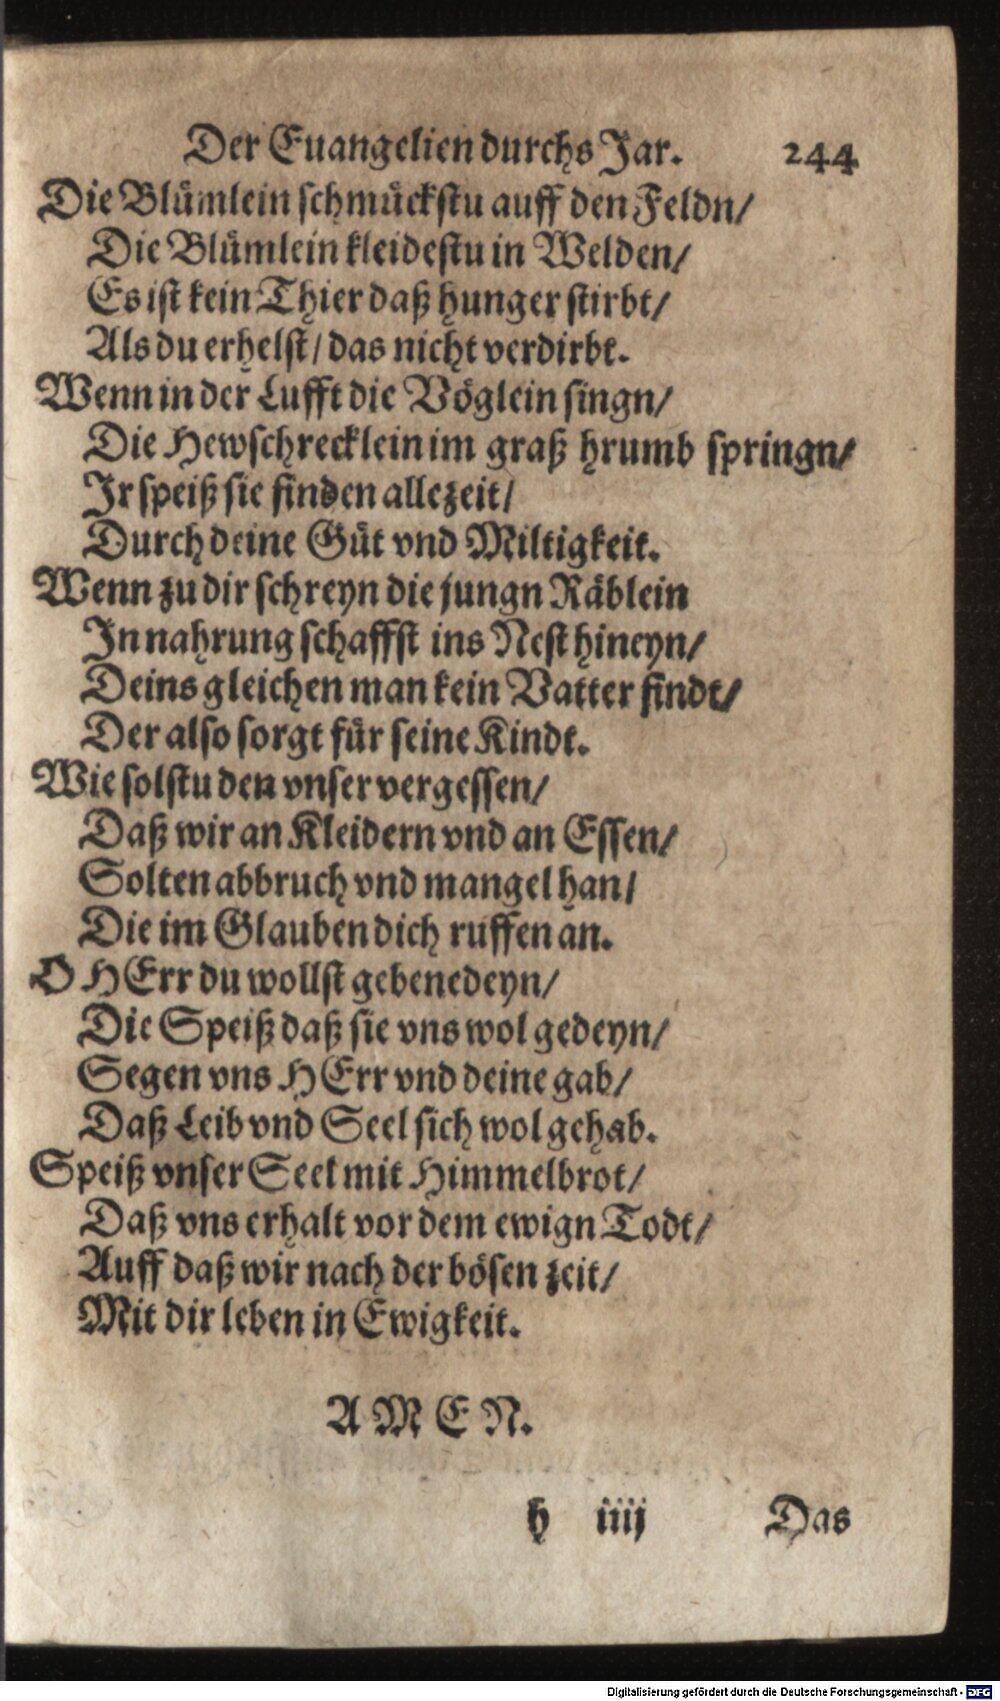 Der Euangelien durchs Jar. 244
Die Blümlein schmückstu auff den Feldn/
Die Blümlein kleidestu in Welden/
Es ist kein Thier daß hunger stirbt/
Als du erhelst/ das nicht verdirbt.
Wenn in der Lufft die Vöglein singn/
Die Hewschrecklein im graß hrumb springn/
Ir speiß sie finden allezeit/
Durch deine Güt vnd Miltigkeit.
Wenn zu dir schreyn die jungn Räblein
In nahrung schaffst ins Nest hineyn/
Deins gleichen man kein Vatter findt/
Der also sorgt für seine Kindt.
Wie solstu den vnser vergessen/
Daß wir an Kleidern vnd an Essen/
Solten abbruch vnd mangel han/
Die im Glauben dich ruffen an.
O HErr du wollst gebenedeyn/
Die Speiß daß sie vns wol gedeyn/
Segen vns HErr vnd deine gab/
Daß Leib vnd Seel sich wol gehab.
Speiß vnser Seel mit Himmelbrot/
Daß vns erhalt vor dem ewign Todt/
Auff daß wir nach der bösen zeit/
Mit dir leben in Ewigkeit.
AMEN.
h iiij Das
Digitalisierung gefördert durch die Deutsche Forschungsgemeinschaft - DFG